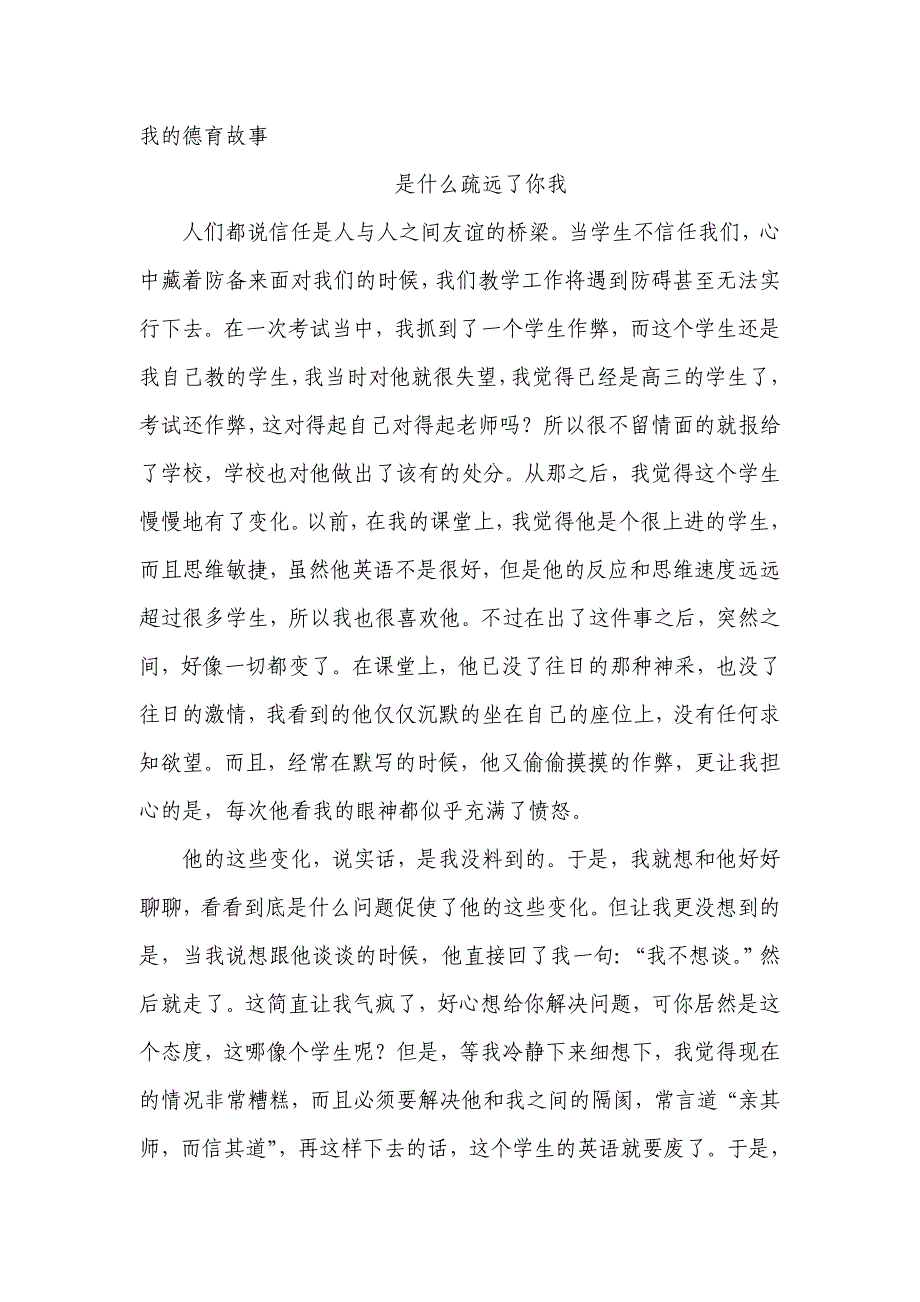 我的德育故事
是什么疏远了你我
人们都说信任是人与人之间友谊的桥梁。当学生不信任我们，心
中藏着防备来面对我们的时候，我们教学工作将遇到防碍甚至无法实
行下去。在一次考试当中，我抓到了一个学生作弊，而这个学生还是
我自己教的学生，我当时对他就很失望，我觉得已经是高三的学生了，
考试还作弊，这对得起自己对得起老师吗？所以很不留情面的就报给
了学校，学校也对他做出了该有的处分。从那之后，我觉得这个学生
慢慢地有了变化。以前，在我的课堂上，我觉得他是个很上进的学生，
而且思维敏捷，虽然他英语不是很好，但是他的反应和思维速度远远
超过很多学生，所以我也很喜欢他。不过在出了这件事之后，突然之
间，好像一切都变了。在课堂上，他已没了往日的那种神采，也没了
往日的激情，我看到的他仅仅沉默的坐在自己的座位上，没有任何求
知欲望。而且，经常在默写的时候，他又偷偷摸摸的作弊，更让我担
心的是，每次他看我的眼神都似乎充满了愤怒。
他的这些变化，说实话，是我没料到的。于是，我就想和他好好
聊聊，看看到底是什么问题促使了他的这些变化。但让我更没想到的
是，当我说想跟他谈谈的时候，他直接回了我一句：“我不想谈。”然
后就走了。这简直让我气疯了，好心想给你解决问题，可你居然是这
个态度，这哪像个学生呢？但是，等我冷静下来细想下，我觉得现在
的情况非常糟糕，而且必须要解决他和我之间的隔阂，常言道“亲其
师，而信其道”，再这样下去的话，这个学生的英语就要废了。于是，